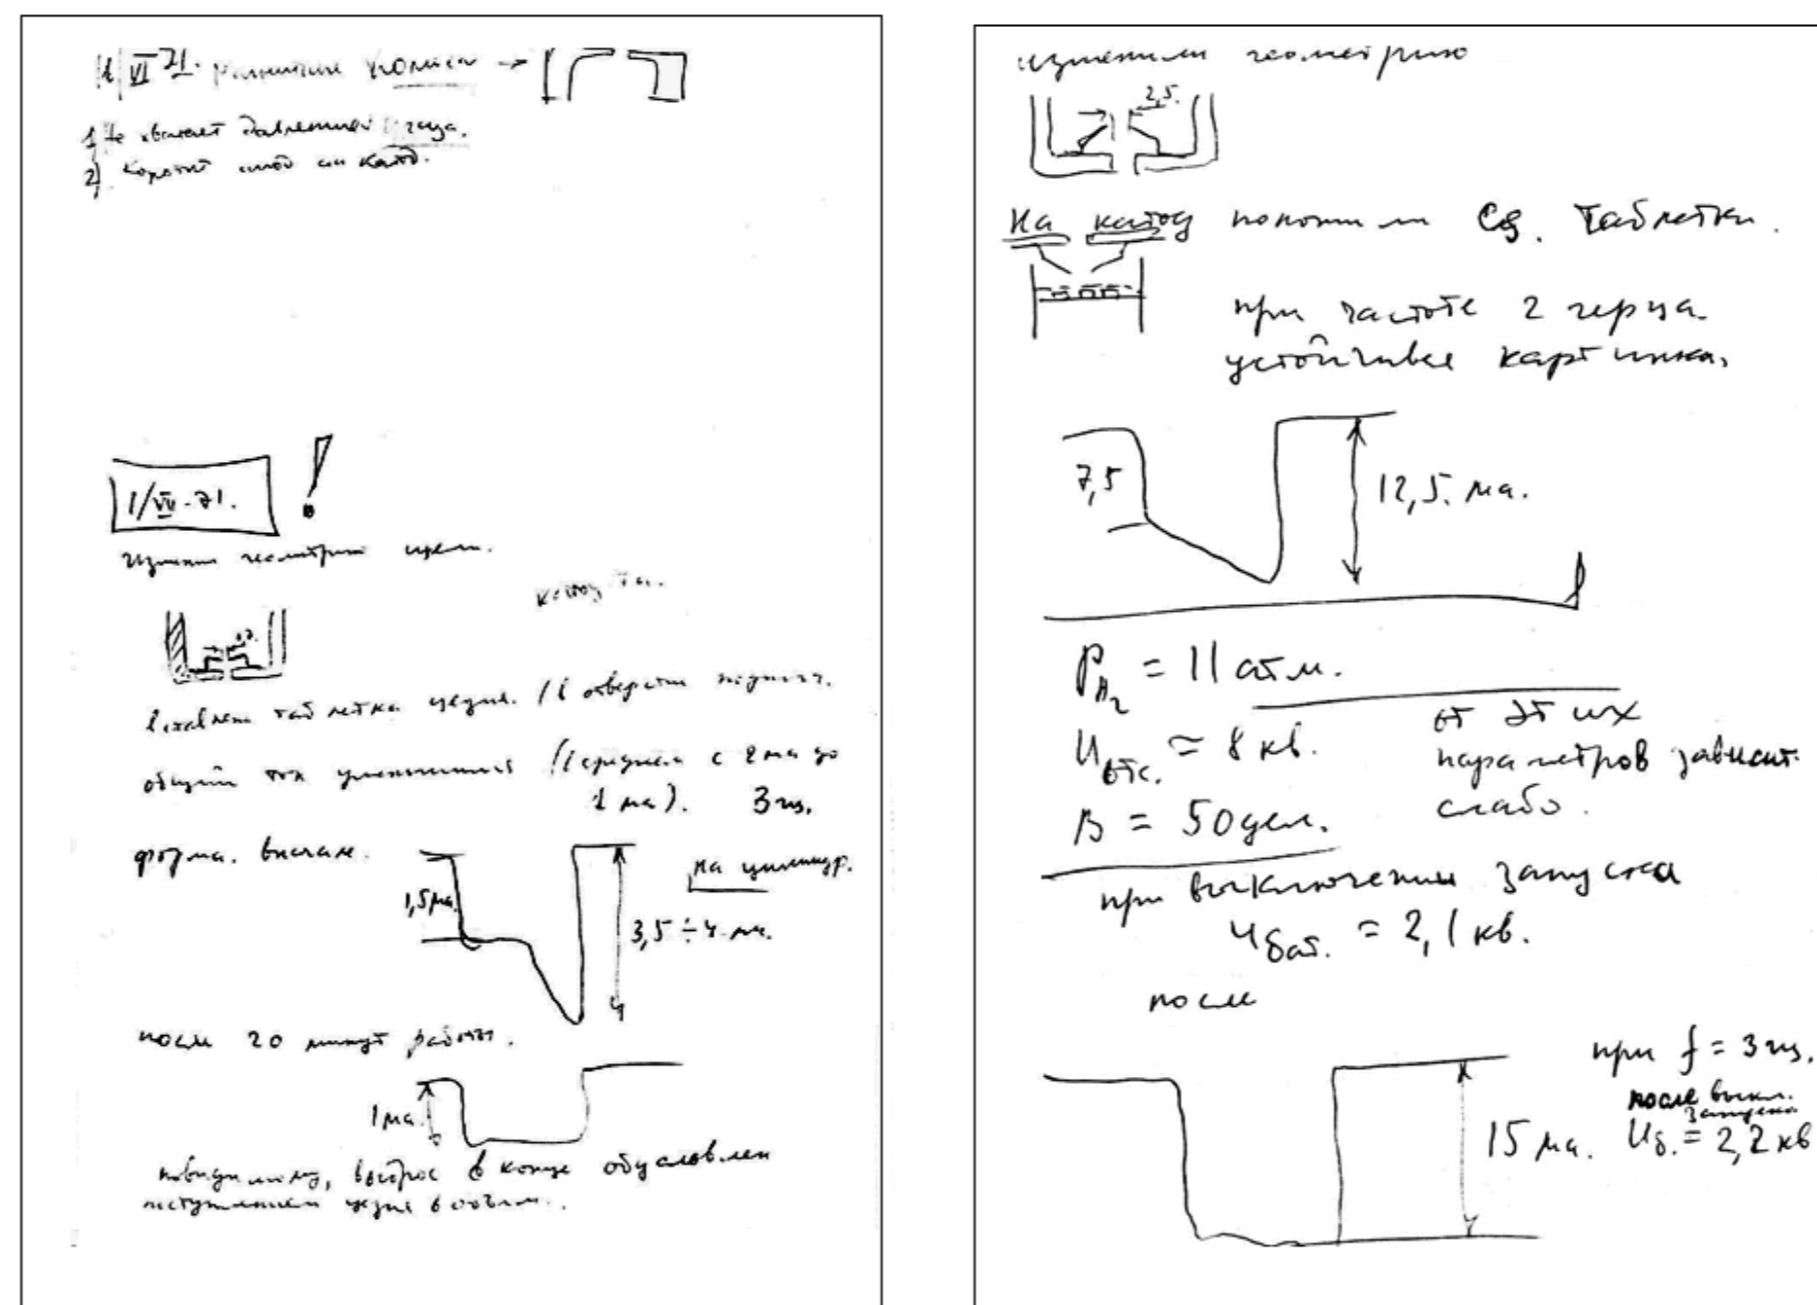 VI 71.
1) Не хватает давления газа.
2) Коротит анод на катод.
1/VII-71. !
Изменили геометрию щели.
катод Та.
вставлена таблетка цезия. // в отверстии
общий ток уменьшился // (средний с 2 ма до
1 ма). 3 гц.
форма. вначале.
на цилиндр.
1,5 ма.
3,5 ÷ 4 ма.
после 20 минут работы.
1 ма.
повидимому, выброс в конце обусловлен
поступлением цезия в объем.
изменили геометрию
2,5.
На катод положили Cs. Таблетки.
при частоте 2 герца
устойчивая картинка.
7,5
12,5. ма.
P H2 = 11 атм.
от этих
U отс. = 8 кв.
параметров зависит
слабо.
B = 50 дел.
при выключении запуска
U бат. = 2,1 кв.
после
при f = 3 гц.
после выкл.
запуска
15 ма. U б. = 2,2 кв